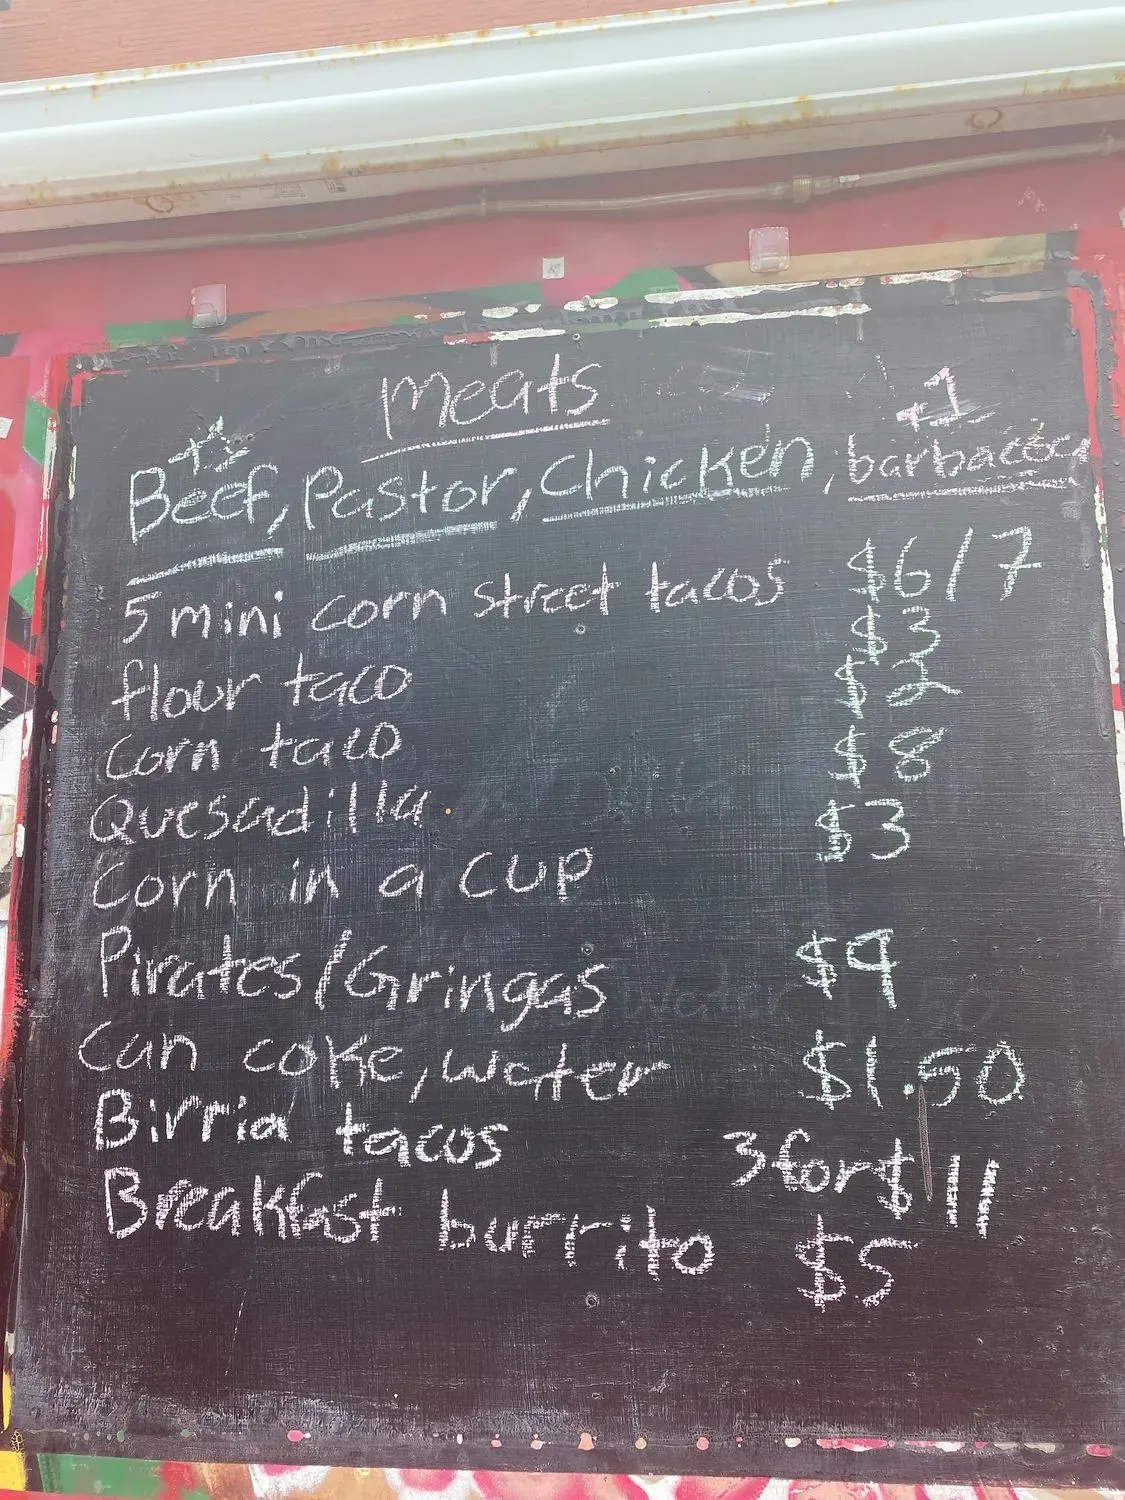 Meats
+1
Beef, Pastor, Chicken, barbacoa
5 mini corn street tacos $6/7
flour taco $3
corn taco $2
Quesadilla $8
Corn in a cup $3
Pirates/Gringas $9
Can coke, water $1.50
Birria tacos 3 for $11
Breakfast burrito $5